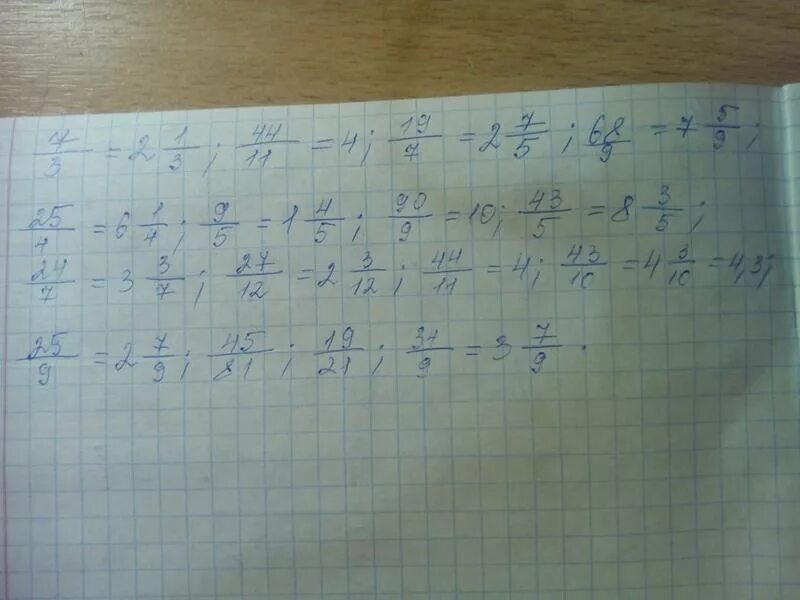 7/3 = 2 1/3; 44/11 = 4; 19/7 = 2 7/5; 68/9 = 7 5/9;
25/4 = 6 1/4; 9/5 = 1 4/5; 90/9 = 10; 43/5 = 8 3/5;
24/7 = 3 3/7; 27/12 = 2 3/12; 44/11 = 4; 43/10 = 4 3/10 = 4,3;
25/9 = 2 7/9; 45/81; 19/21; 34/9 = 3 7/9.